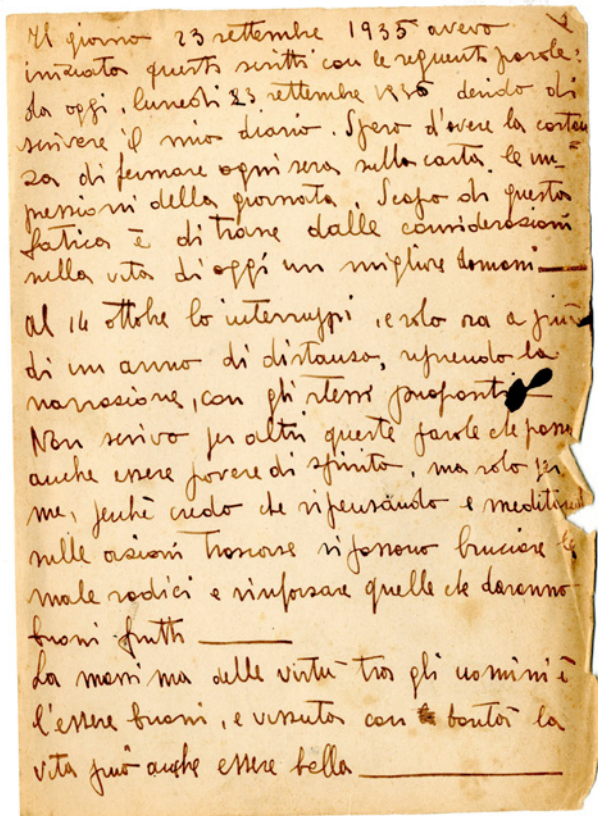 Il giorno 23 settembre 1935 avevo
iniziato questi scritti con le seguenti parole:
da oggi, lunedì 23 settembre 1935 decido di
scrivere il mio diario. Spero d'avere la costan
za di fermare ogni sera sulla carta le im=
pressioni della giornata. Scopo di questa
fatica è di trarre dalle considerazioni
sulla vita di oggi un migliore domani
al 14 ottobre lo interruppi, e solo ora a più
di un anno di distanza, riprendo la
narrazione, con gli stessi propositi
Non scrivo per altri queste parole che posson
anche essere povere di spirito, ma solo per
me, perchè credo che ripensando e meditando
sulle azioni trascorse si possono bruciare le
male radici e rinforzare quelle che daranno
buoni frutti
La massima delle virtù tra gli uomini è
l'essere buoni, e vissuta con bontà la
vita può anche essere bella